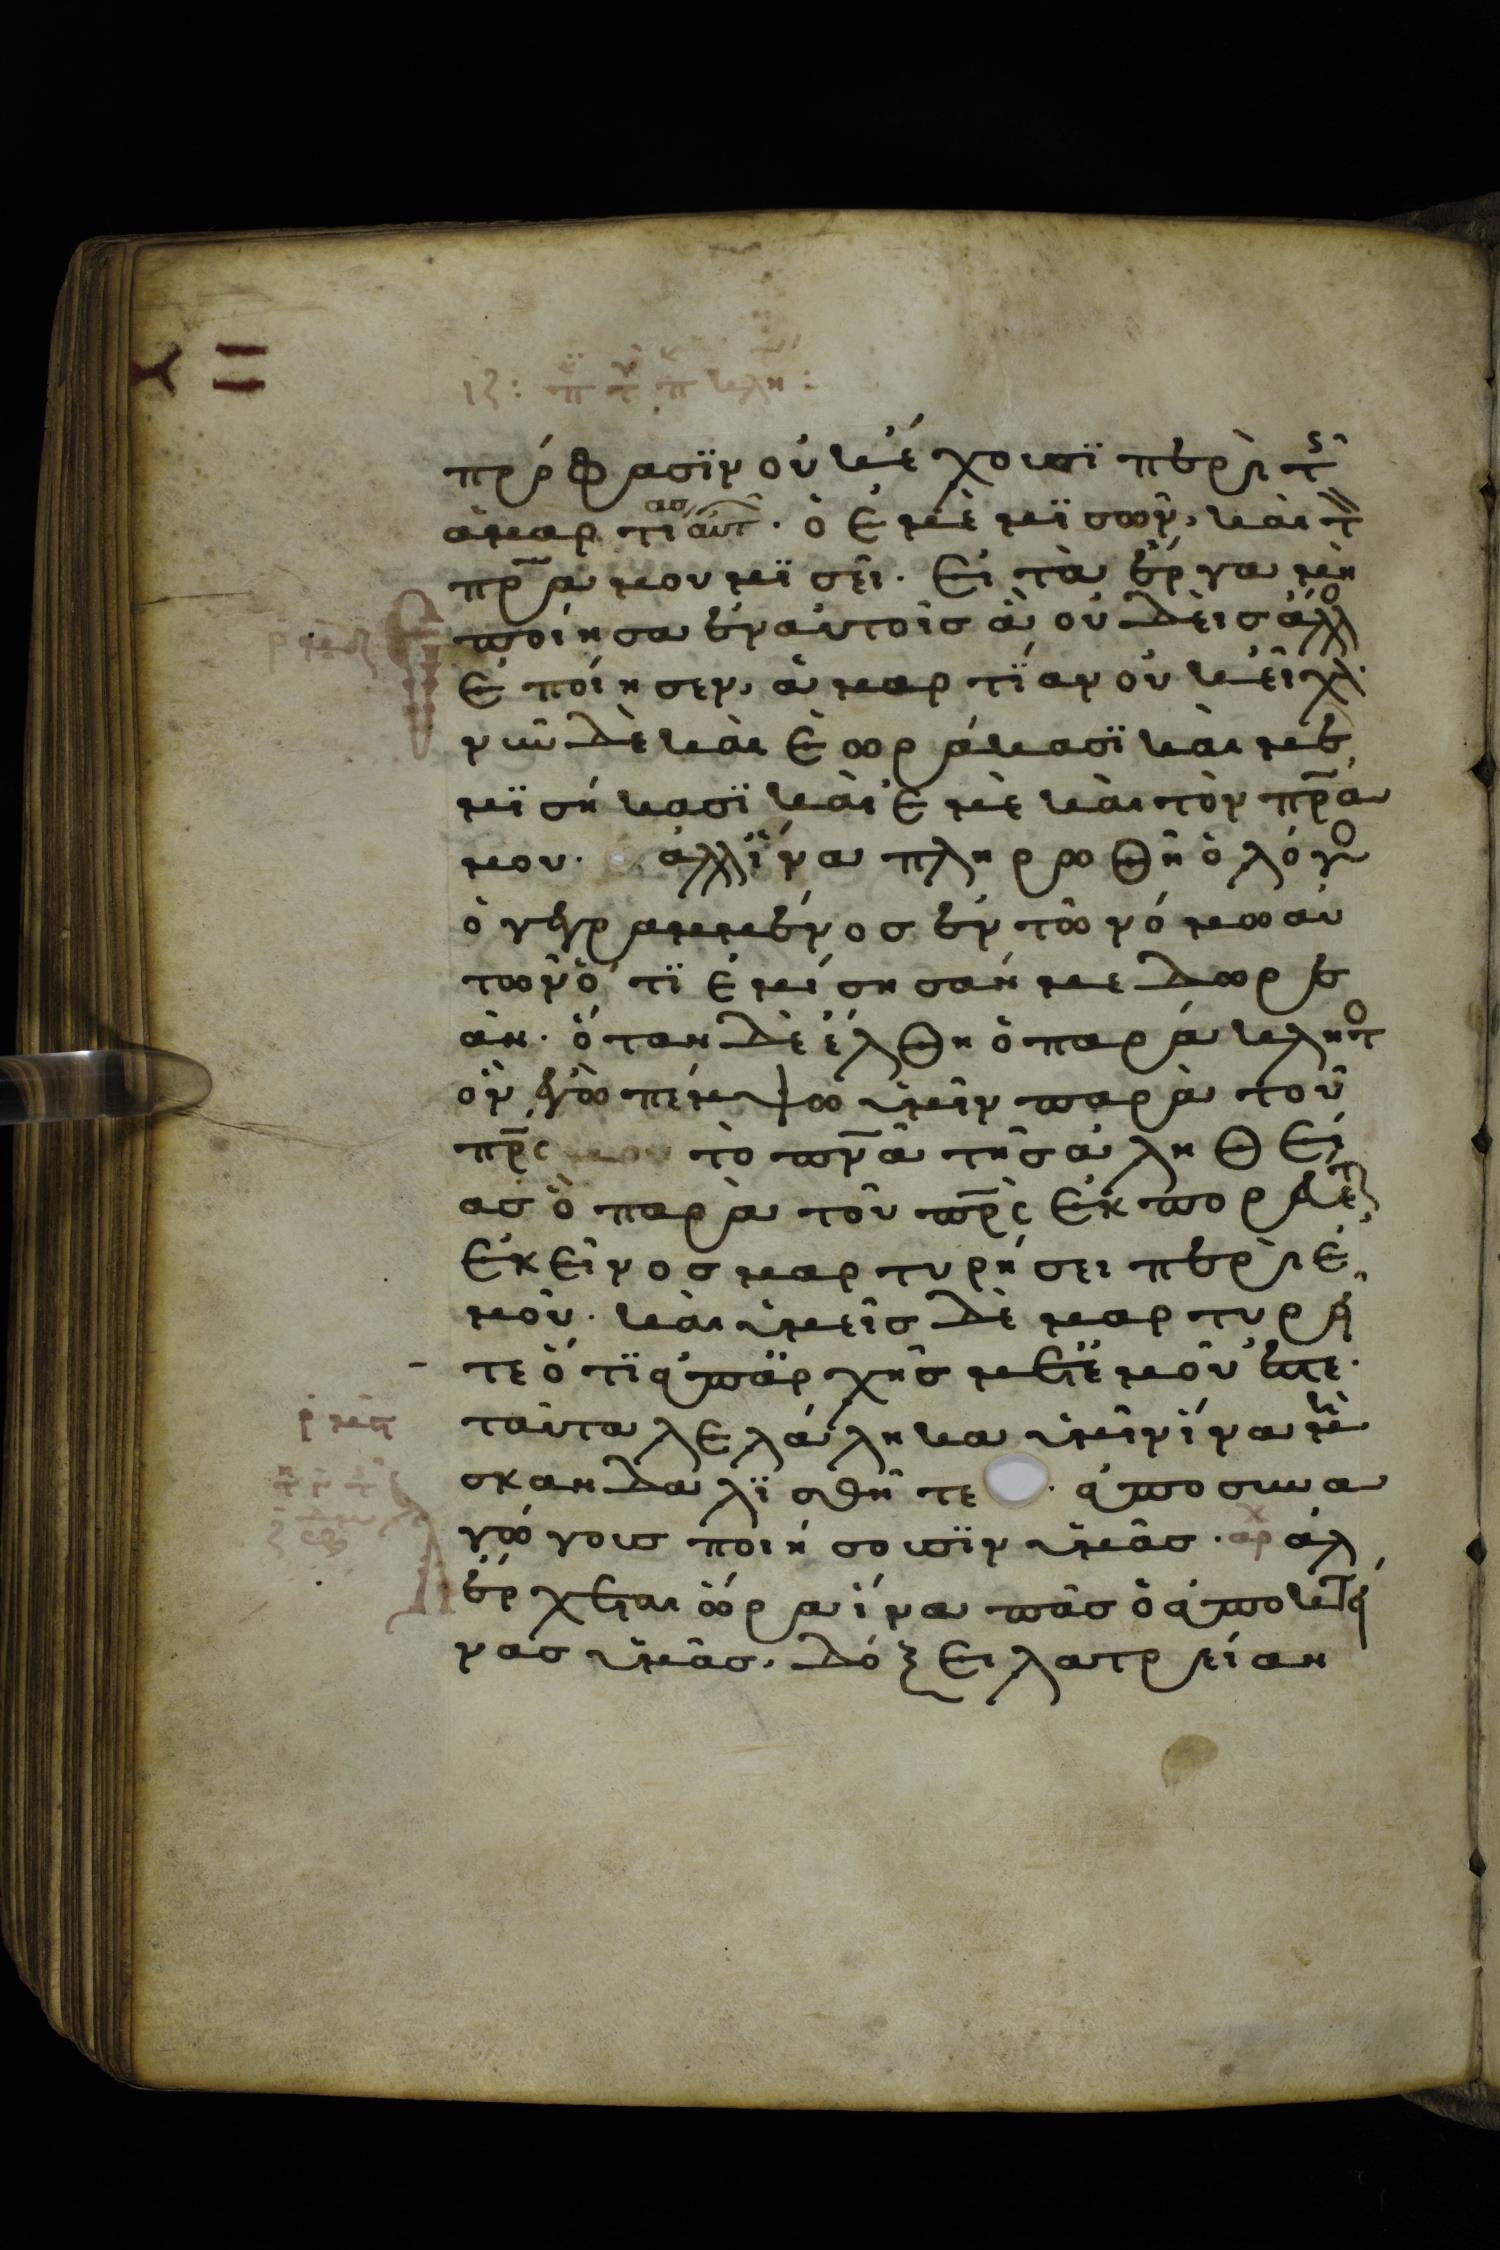 πρόφασϊν οὐκ ἔχουσϊ περὶ τῆς
ἁμαρτίας αὐτ. ὁ ἐμὲ μϊσῶν, καὶ τὸν
πρ̅α μου μϊσεῖ. Εἰ τὰ ἔργα μὴ
ποίησα ἐν αὐτοῖς ἃ οὐδεὶς ἄλλο
ἐποίησεν, ἁμαρτΐαν οὐκ εἶχον.
νῦν δὲ καὶ ἑωράκασϊ καὶ με
μϊσήκασϊ καὶ ἐμὲ καὶ τὸν πρ̅α
μου. ἀλλ ἵνα πληρωθῆ ὁ λόγο
ὁ γεγραμμένος ἐν τῶ νόμω αὐ
τῶν ὅτϊ ἐμίσησάν με δωρε
άν. ὅταν δὲ ἔλθη ὁ παράκλητο
ὃν ἐγὼ πέμψω ὑμῖν παρὰ τοῦ
πρ̅ς μου τὸ πν̅α τῆς ἀληθεί
ας ὃ παρὰ τοῦ πρ̅ς ἐκπορεύετ
ἐκεῖνος μαρτυρήσει περὶ ἐ
μοῦ. καὶ ὑμεῖς δὲ μαρτυρεῖ
τε ὅτϊ ἀπ ἀρχῆς μετ ἐμοῦ ἐστε.
ταῦτα λελάληκα ὑμῖν ἵνα μὴ
σκανδαλϊσθῆτε. ἀποσυνα
γώγους ποιήσουσϊν ὑμᾶς. ἀρχ ἀλ
ἔρχεται ὥρα ἵνα πᾶς ὁ ἀποκτεί
νας ὑμᾶς, δόξει λατρείαν